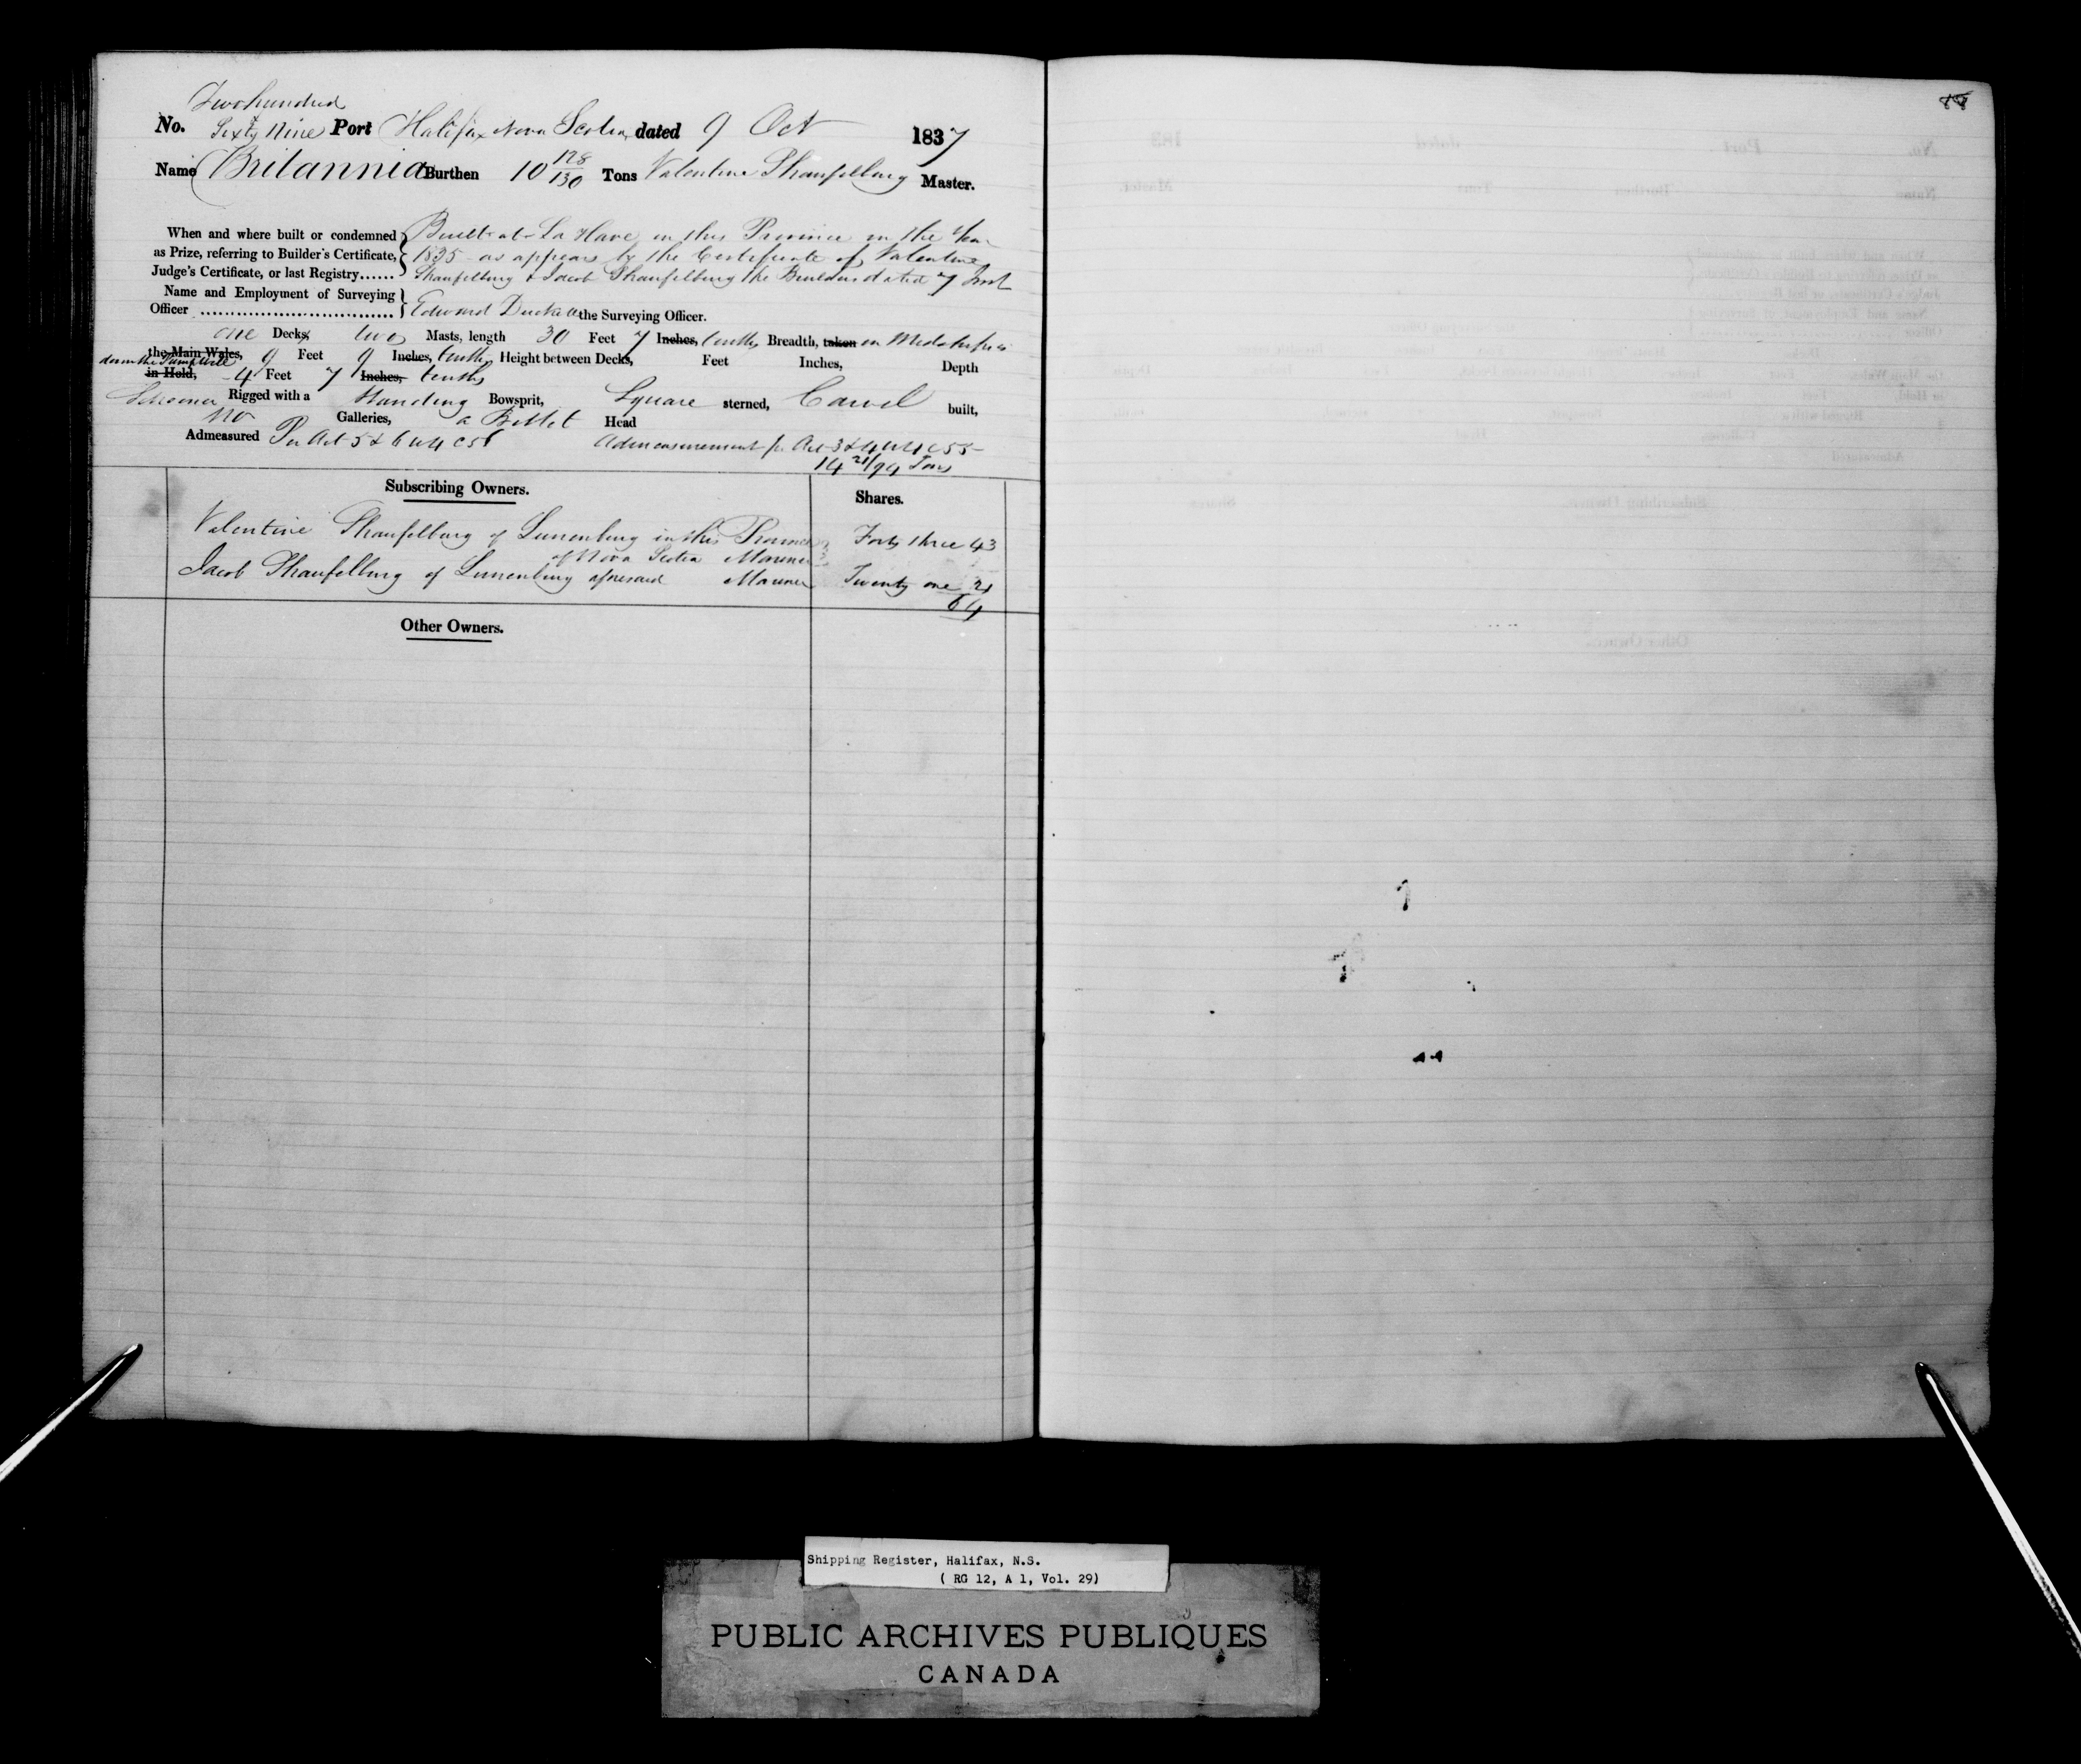 Two hundred
No. Sixty Nine Port Halifax Nova Scotia dated 9 Oct 1837
Name Britannia Burthen 10 128/130 Tons Valentine Shaufelburg Master.
When and where built or condemned as Prize, referring to Builder's Certificate, Judge's Certificate, or last Registry......
Built at La Have in this Province in the Year
1835 as appears by the Certificate of Valentine
Shaufelburg & Jacob Shaufelburg the Builders dated 7 Inst
Name and Employment of Surveying Officer
Edward the Surveying Officer.
one Decks, two Masts, length 30 Feet 7 Inches, tenths Breadth, taken in Midships
the Main Wales, 9 Feet 9 Inches, tenths Height between Decks, Feet Inches, Depth
in Hold, 4 Feet 7 Inches, tenths
Schooner Rigged with a Standing Bowsprit, Square sterned, Carvel built,
no Galleries, a Billet Head
Admeasured Per Act 5 & 6 W 4 C 56 Admeasurement pr Act 3 & 4 W 4 C 55
14 21/94 Tons
Subscribing Owners. Shares.
Valentine Shaufelburg of Lunenburg in this Province Forty three 43
of Nova Scotia Mariner
Jacob Shaufelburg of Lunenburg aforesaid Mariner Twenty one 21
64
Other Owners.
Shipping Register, Halifax, N.S.
( RG 12, A 1, Vol. 29)
PUBLIC ARCHIVES PUBLIQUES
CANADA